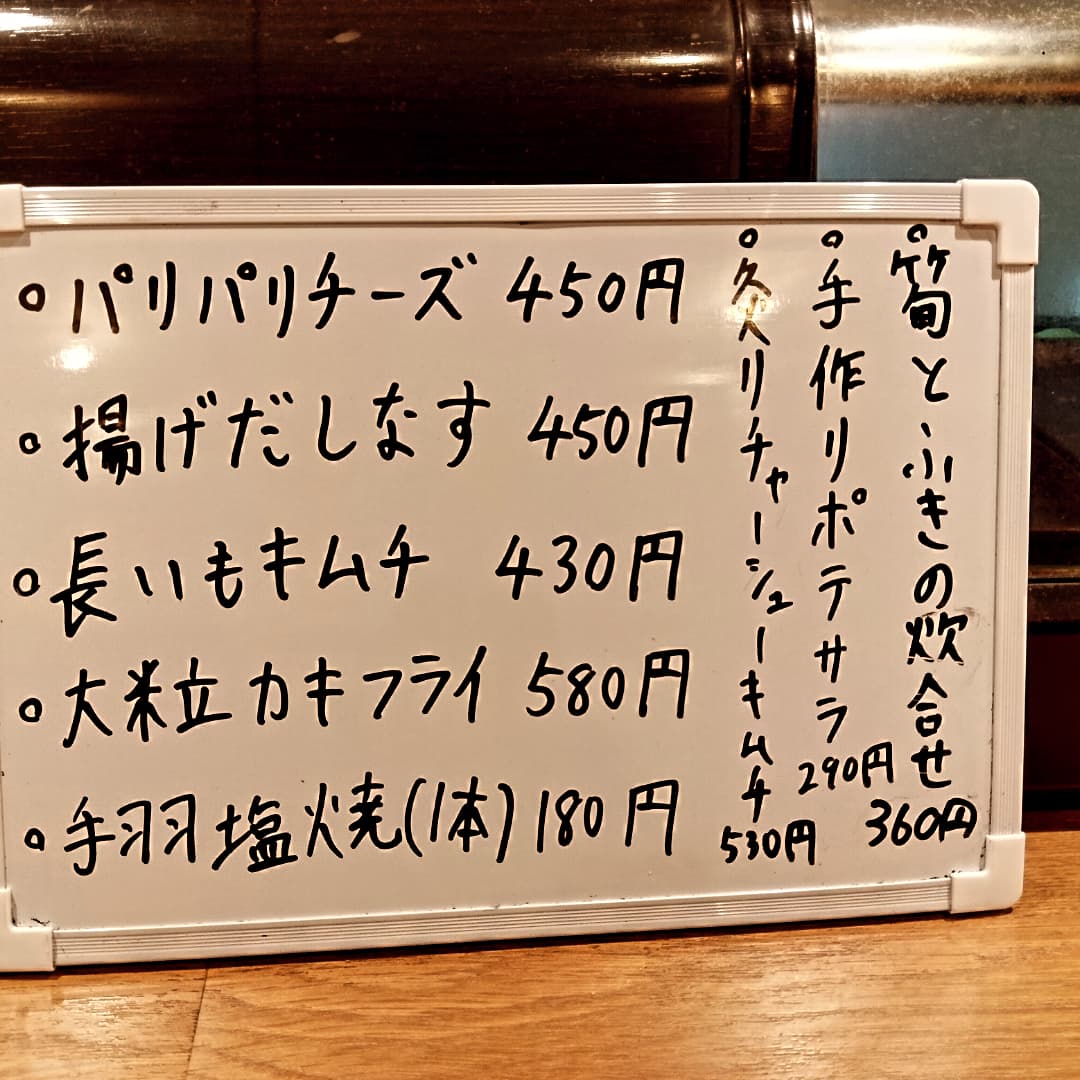 ○パリパリチーズ 450円
○揚げだしなす 450円
○長いもキムチ 430円
○大粒カキフライ 580円
○手羽塩焼(1本) 180円
○筍とふきの炊合せ 360円
○手作りポテサラ 290円
○炙りチャーシューキムチ 530円